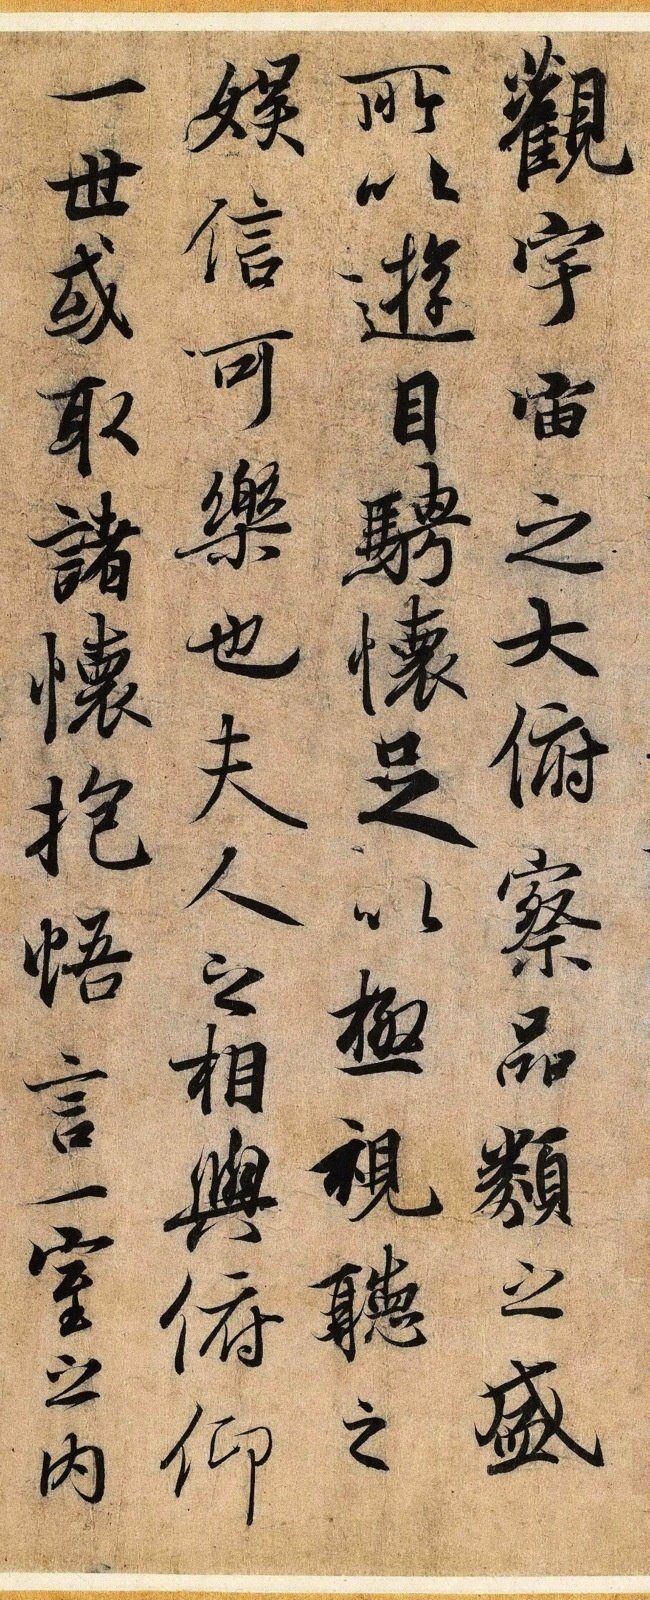 觀宇宙之大俯察品類之盛
所以遊目騁懷足以極視聽之
娛信可樂也夫人之相與俯仰
一世或取諸懷抱悟言一室之內